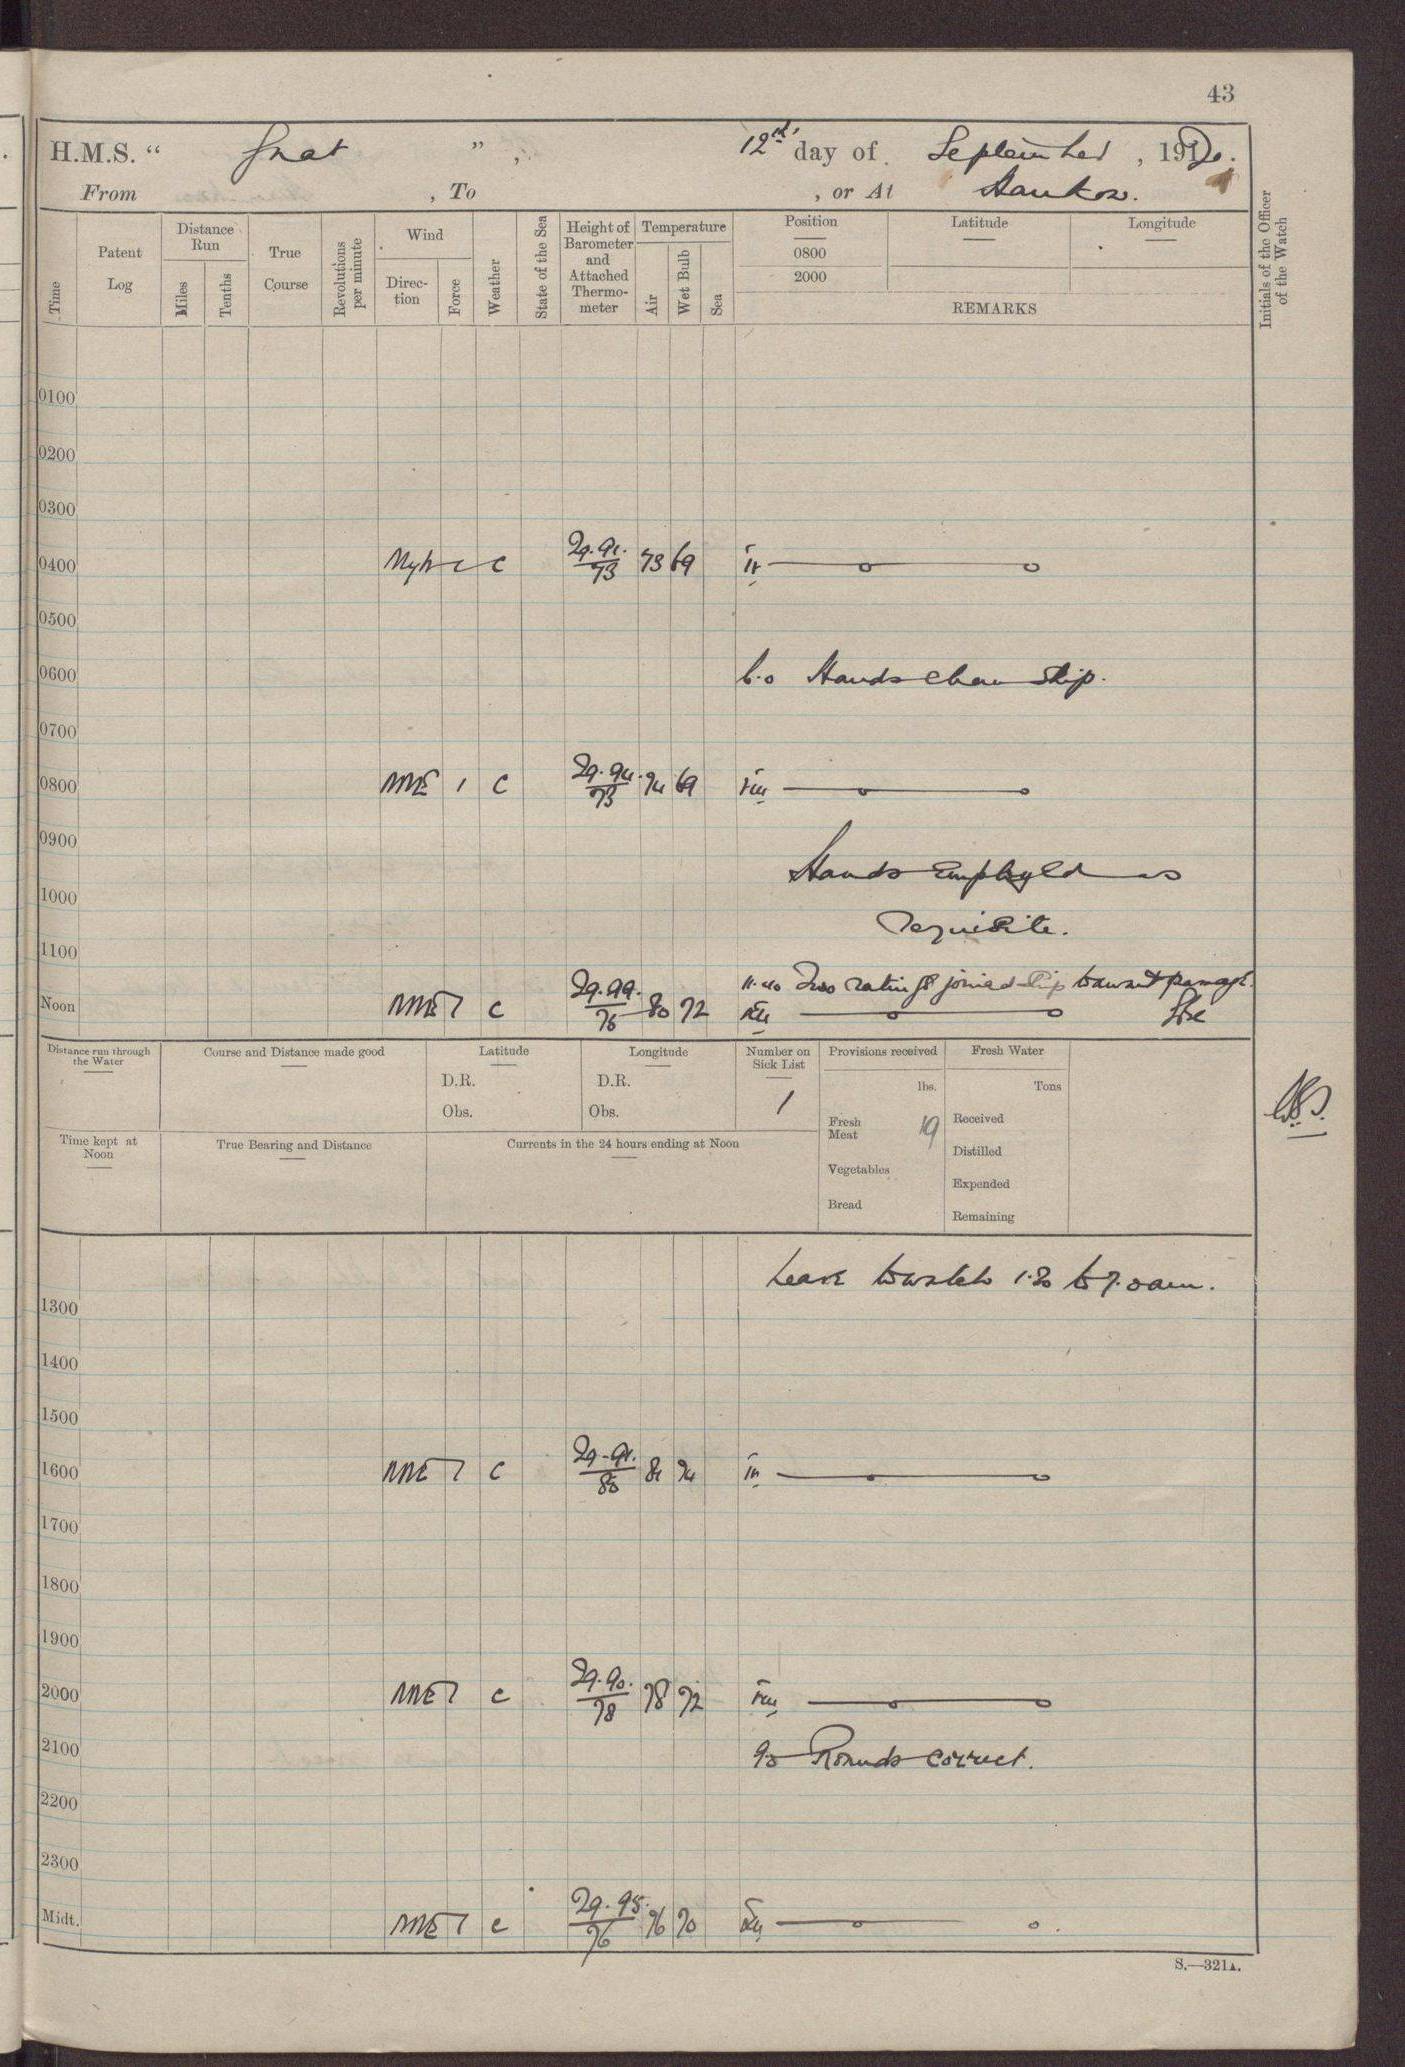 43
H.M.S. “ Gnat ” , 12th day of September , 1920.
From , To , or At Hankow.
Time
Patent Log
Distance Run
Miles
Tenths
True Course
Revolutions per minute
Wind
Direction
Force
Weather
State of the Sea
Height of Barometer and Attached Thermometer
Temperature
Air
Wet Bulb
Sea
Position
0800
2000
Latitude
Longitude
REMARKS
Initials of the Officer of the Watch
0100
0200
0300
0400 C 29.91. 73 73 69 iv
0500
0600 6.0 Hands clean ship.
0700
0800 NNE 1 C 29.94. 73 74 69 viii
0900 Hands employed as
1000 requisite.
1100 11.40 Two ratings joined ship to await passage
Noon NNE 1 C 29.99. 76 80 72 xii
Distance run through the Water
Course and Distance made good
Latitude
D.R.
Obs.
Longitude
D.R.
Obs.
Number on Sick List
1
Provisions received
lbs.
Fresh Meat 19
Vegetables
Bread
Fresh Water
Tons
Received
Distilled
Expended
Remaining
Time kept at Noon
True Bearing and Distance
Currents in the 24 hours ending at Noon
Leave to watch 1.30 to 7.0am.
1300
1400
1500
1600 NNE 1 C 29.91. 80 81 74 iv
1700
1800
1900
2000 NNE 1 C 29.90. 78 78 72 viii
2100 9.0 Rounds correct.
2200
2300
Midt. NNE 1 C 29.95. 76 76 70 xii
S.—321A.